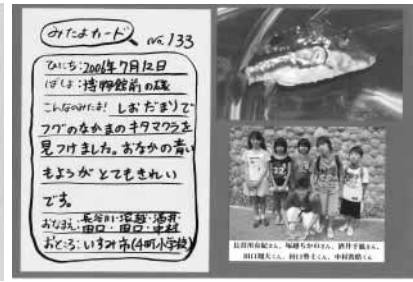 みたよカード No.133
ひにち:2006年7月12日
ばしょ:博物館前の磯
こんなのみたよ! しおだまりで
フグのなかまのキタマクラを
見つけました。おなかの青い
もようが とてもきれい
です。
おなまえ:長谷川・塚越・酒井
田口・田口・中村
おところ:いすみ市(4町小学校)
長谷川有紀さん、塚越ちかのさん、酒井千鶴さん、
田口翔大くん、田口聖士くん、中村貴皓くん